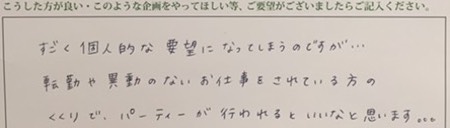 こうした方が良い・このような企画をやってほしい等、ご要望がございましたらご記入ください。
すごく個人的な要望になってしまうのですが…
転勤や異動のないお仕事をされている方の
くくりで、パーティーが行われるといいなと思います。。。